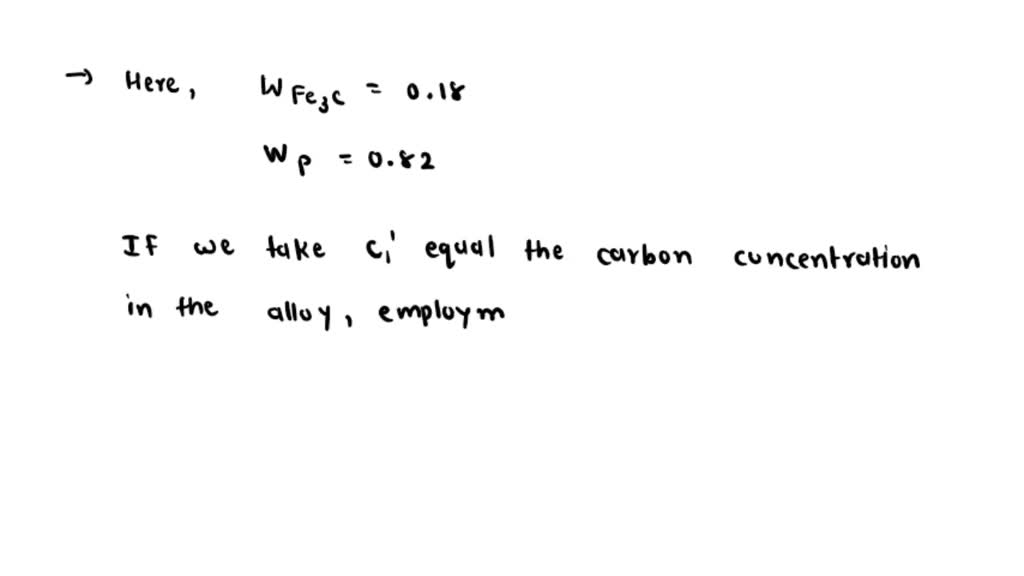 → Here, W Fe₃C = 0.18
W p = 0.82
If we take C₁' equal the carbon concentration
in the alloy, employm